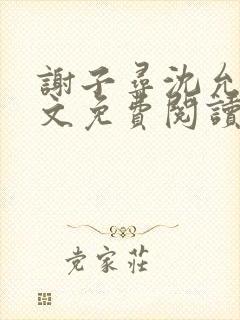 謝子尋沈允
文免費閱讀
党家莊